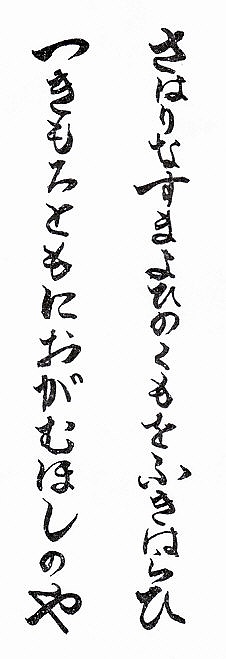 さはりなすまよひのくもをふきはらひ
つきもろともにおがむほしのや